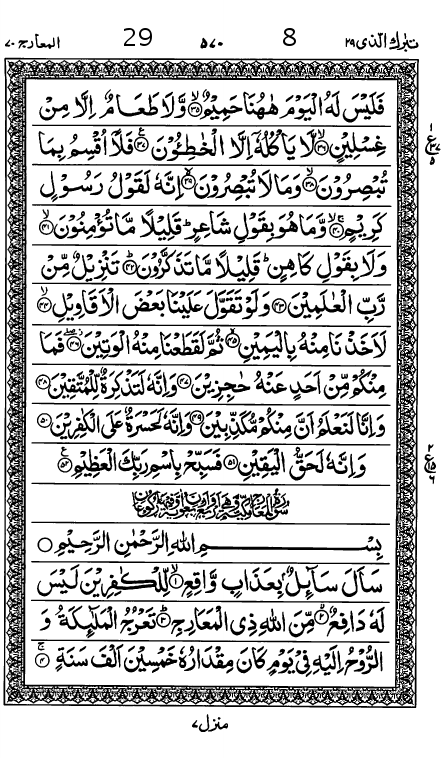 تبٰرك الذی ۲۹ 8 ۵۷۰ 29 المعارج ۷۰
فَلَيْسَ لَهُ الْيَوْمَ هٰهُنَا حَمِيْمٌ ۙ﴿۳۵﴾ وَّلَا طَعَامٌ اِلَّا مِنْ
غِسْلِيْنٍ ۙ﴿۳۶﴾ لَّا يَاْكُلُهٗۤ اِلَّا الْخٰطِـُٔوْنَ ۧ﴿۳۷﴾ فَلَاۤ اُقْسِمُ بِمَا
تُبْصِرُوْنَ ۙ﴿۳۸﴾ وَمَا لَا تُبْصِرُوْنَ ۙ﴿۳۹﴾ اِنَّهٗ لَقَوْلُ رَسُوْلٍ
كَرِيْمٍ ۚۙ﴿۴۰﴾ وَّمَا هُوَ بِقَوْلِ شَاعِرٍ ؕ قَلِيْلًا مَّا تُؤْمِنُوْنَ ۙ﴿۴۱﴾
وَلَا بِقَوْلِ كَاهِنٍ ؕ قَلِيْلًا مَّا تَذَكَّرُوْنَ ؕ﴿۴۲﴾ تَنْزِيْلٌ مِّنْ
رَّبِّ الْعٰلَمِيْنَ ﴿۴۳﴾ وَلَوْ تَقَوَّلَ عَلَيْنَا بَعْضَ الْاَقَاوِيْلِ ۙ﴿۴۴﴾
لَاَخَذْنَا مِنْهُ بِالْيَمِيْنِ ۙ﴿۴۵﴾ ثُمَّ لَقَطَعْنَا مِنْهُ الْوَتِيْنَ ۖ﴿۴۶﴾ فَمَا
مِنْكُمْ مِّنْ اَحَدٍ عَنْهُ حٰجِزِيْنَ ﴿۴۷﴾ وَاِنَّهٗ لَتَذْكِرَةٌ لِّلْمُتَّقِيْنَ ﴿۴۸﴾
وَاِنَّا لَنَعْلَمُ اَنَّ مِنْكُمْ مُّكَذِّبِيْنَ ﴿۴۹﴾ وَاِنَّهٗ لَحَسْرَةٌ عَلَى الْكٰفِرِيْنَ ﴿۵۰﴾
وَاِنَّهٗ لَحَقُّ الْيَقِيْنِ ﴿۵۱﴾ فَسَبِّحْ بِاسْمِ رَبِّكَ الْعَظِيْمِ ۧ﴿۵۲﴾
بِسْمِ اللّٰهِ الرَّحْمٰنِ الرَّحِيْمِ
سَاَلَ سَآئِلٌۢ بِعَذَابٍ وَّاقِعٍ ۙ﴿۱﴾ لِّلْكٰفِرِيْنَ لَيْسَ
لَهٗ دَافِعٌ ۙ﴿۲﴾ مِّنَ اللّٰهِ ذِی الْمَعَارِجِ ؕ﴿۳﴾ تَعْرُجُ الْمَلٰٓئِكَةُ وَ
الرُّوْحُ اِلَيْهِ فِیْ يَوْمٍ كَانَ مِقْدَارُهٗ خَمْسِيْنَ اَلْفَ سَنَةٍ ۚ﴿۴﴾
منزل ۷